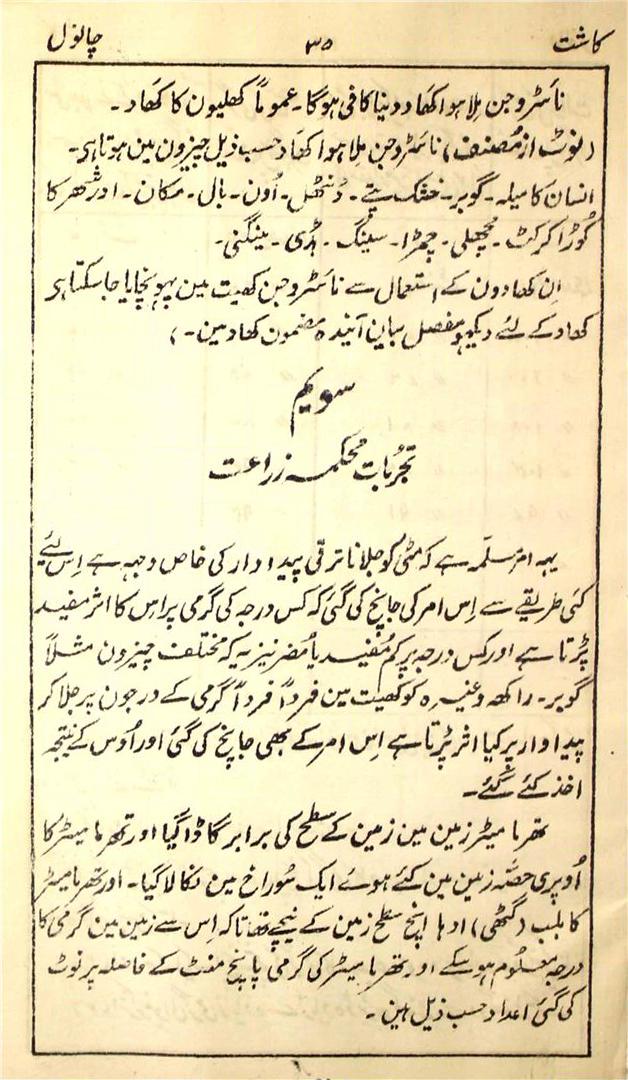 کاشت ۳۵ چالول
نائٹروجن مِلا ہوا کھاد دینا کافی ہوگا۔ عموماً کھلیون کا کھاد۔
(نوٹ از مُصنف) نائٹروجن مِلا ہوا کھاد حسب ذیل چیزون مین ہوتا ہی۔
انسان کا میلہ۔ گوبر۔ خشک پتے۔ ڈنٹھل۔ اُون۔ بال۔ مکان۔ اور شھر کا
کُوڑا کرکٹ۔ مچھلی۔ چمڑا۔ سینگ۔ ہڈی۔ مینگنی۔
اِن کھادون کے استعمال سے نائٹروجن کھیت مین پہونچایا جا سکتا ہی
کھاد کے لئے دیکہو مفصل بیان آیندہ مضمون کھاد مین۔)
سویم
تجرُبات محکمہ زراعت
یہہ امر مُسلّمہ ہے کہ مٹی کو جلانا ترقی پیداوار کی خاص وجہہ ہے اِس لئے
کئی طریقے سے اِس امر کی جانچ کی گئی کہ کس درجہ کی گرمی پر اس کا اثر مفید
پڑتا ہے اور کس درجہ پر کم مُفید یا مُضر نیز یہ کہ مختلف چیزون مثلاً
گوبر۔ راکھہ وغیرہ کو کھیت مین فرداً فرداً گرمی کے درجون پر جلا کر
پیداوار پر کیا اثر پڑتا ہے اِس امر کے بھی جانچ کی گئی اور اُوس کے نتیجہ
اخذ کئے گئے۔
تھرمامیٹر زمین مین زمین کے سطح کی برابر گاڈا گیا اور تھرمامیٹر کا
اُوپری حصّہ زمین مین کئے ہوئے ایک سُوراخ مین نکالا گیا۔ اور تھرمامیٹر
کا بلب (گٹھی) ادہا اپنچ سطح زمین کے نیچے تھا تاکہ اِس سے زمین مین گرمی کا
درجہ معلُوم ہو سکے اور تھرمامیٹر کی گرمی پانچ منٹ کے فاصلہ پر نوٹ
کی گئی اعداد حسب ذیل ہین۔